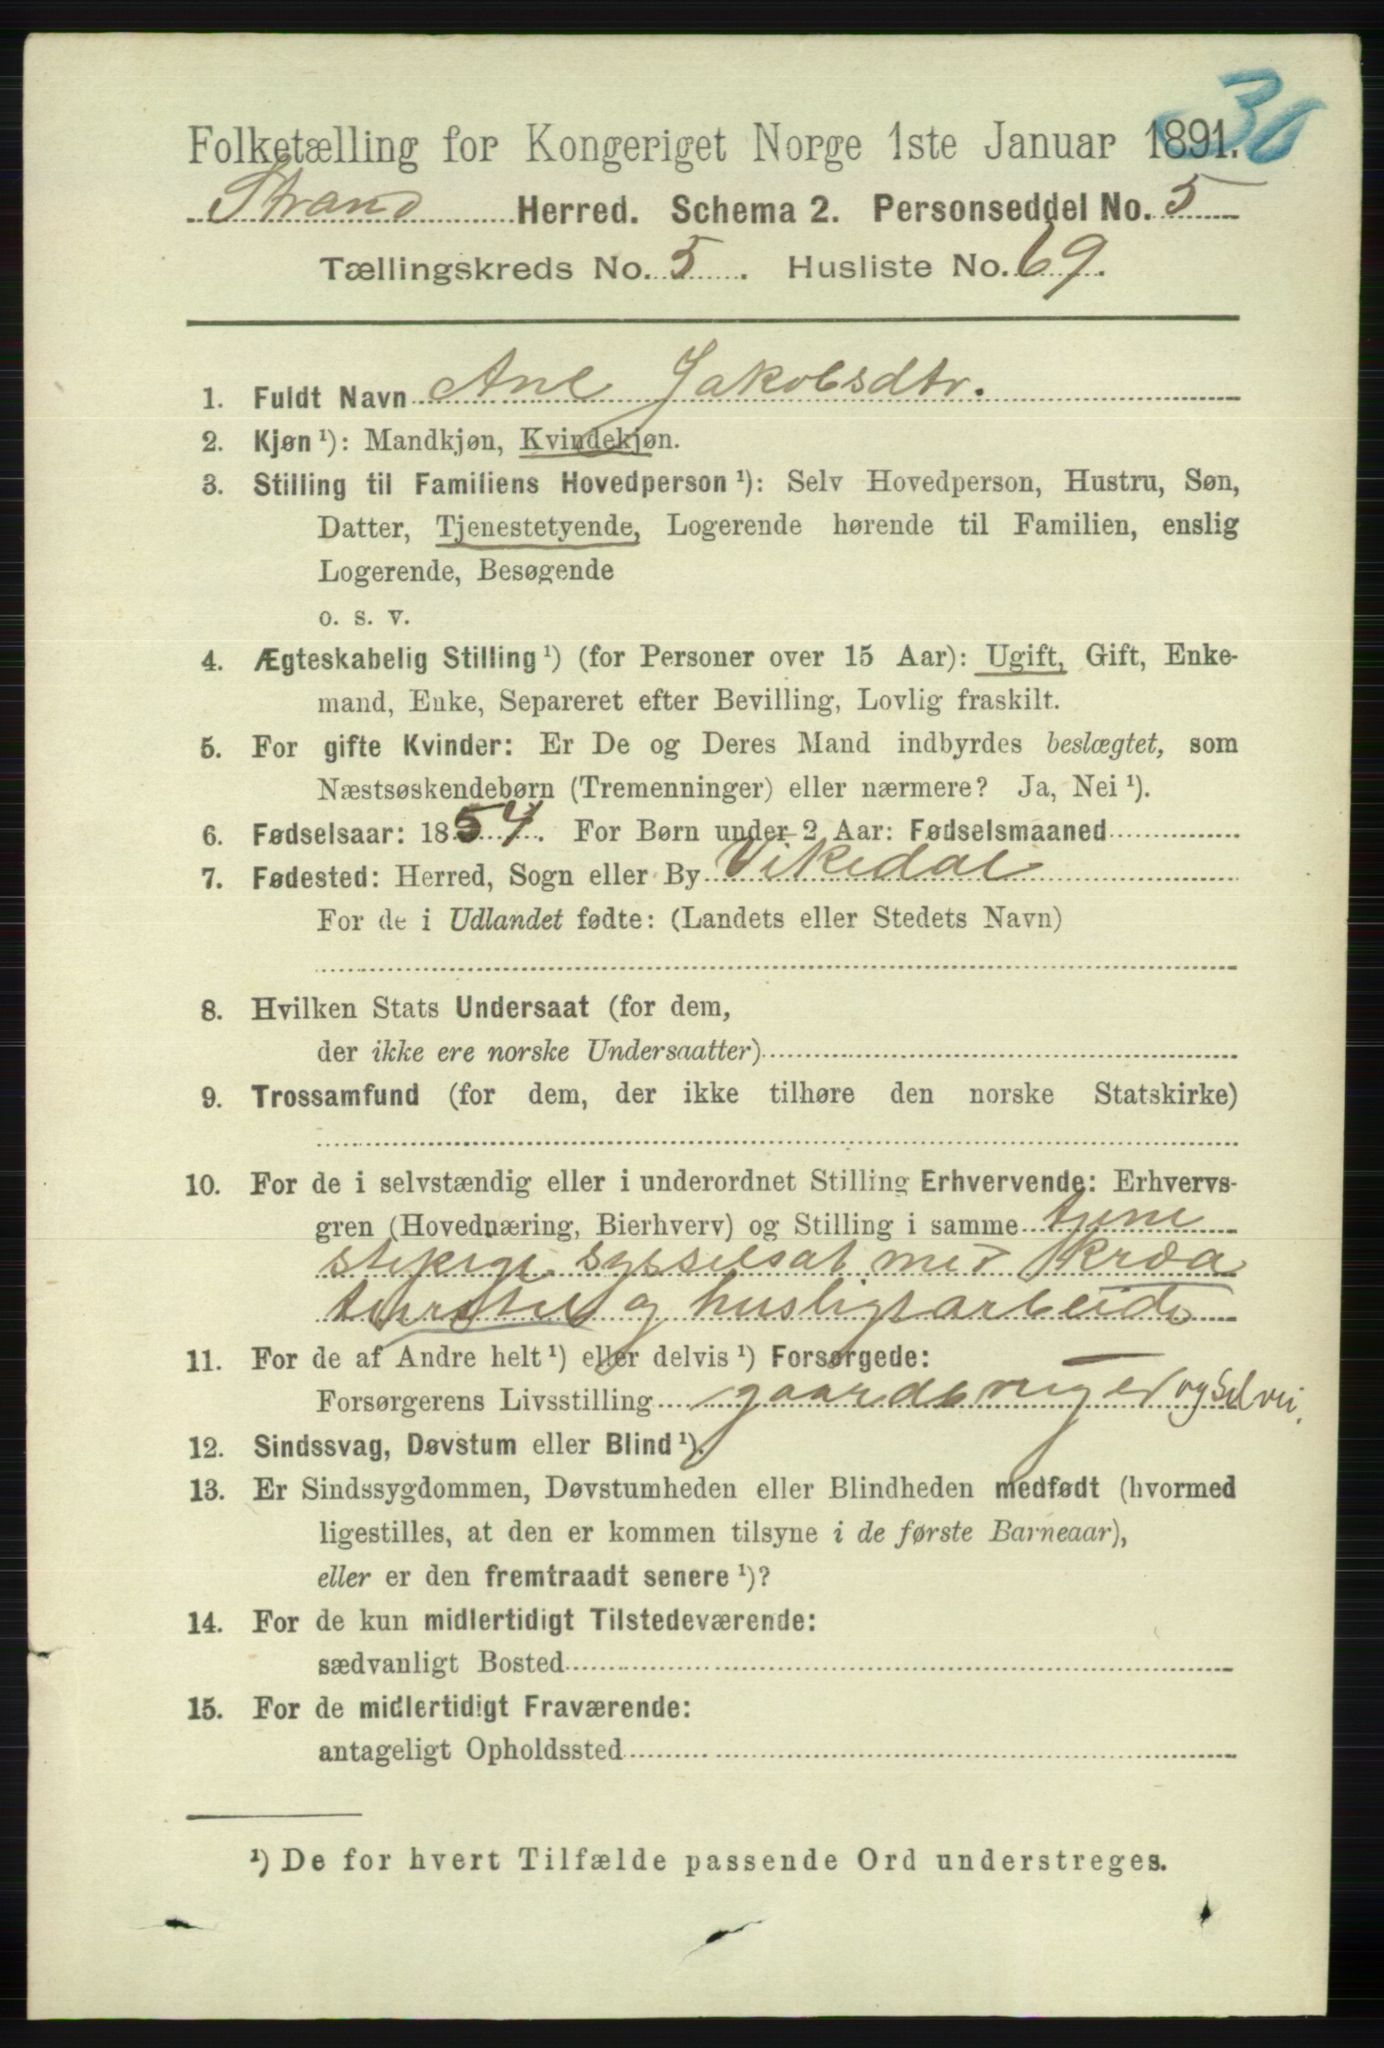 30
Folketælling for Kongeriget Norge 1ste Januar 1891.
Strand Herred. Schema 2. Personseddel No. 5
Tællingskreds No. 5. Husliste No. 69.
1. Fuldt Navn Ane Jakobsdtr.
2. Kjøn ¹): Mandkjøn, Kvindekjøn.
3. Stilling til Familiens Hovedperson ¹): Selv Hovedperson, Hustru, Søn,
Datter, Tjenestetyende, Logerende hørende til Familien, enslig
Logerende, Besøgende
o. s. v.
4. Ægteskabelig Stilling ¹) (for Personer over 15 Aar): Ugift, Gift, Enke-
mand, Enke, Separeret efter Bevilling, Lovlig fraskilt.
5. For gifte Kvinder: Er De og Deres Mand indbyrdes beslægtet, som
Næstsøskendebørn (Tremenninger) eller nærmere? Ja, Nei ¹).
6. Fødselsaar: 1854. For Børn under 2 Aar: Fødselsmaaned
7. Fødested: Herred, Sogn eller By Vikedal
For de i Udlandet fødte: (Landets eller Stedets Navn)
8. Hvilken Stats Undersaat (for dem,
der ikke ere norske Undersaatter)
9. Trossamfund (for dem, der ikke tilhøre den norske Statskirke)
10. For de i selvstændig eller i underordnet Stilling Erhvervende: Erhvervs-
gren (Hovednæring, Bierhverv) og Stilling i samme tjene
sysselsat med
og husligtarbeide
11. For de af Andre helt ¹) eller delvis ¹) Forsørgede:
Forsørgerens Livsstilling gaardbruger og
12. Sindssvag, Døvstum eller Blind ¹).
13. Er Sindssygdommen, Døvstumheden eller Blindheden medfødt (hvormed
ligestilles, at den er kommen tilsyne i de første Barneaar),
eller er den fremtraadt senere ¹)?
14. For de kun midlertidigt Tilstedeværende:
sædvanligt Bosted
15. For de midlertidigt Fraværende:
antageligt Opholdssted
¹) De for hvert Tilfælde passende Ord understreges.